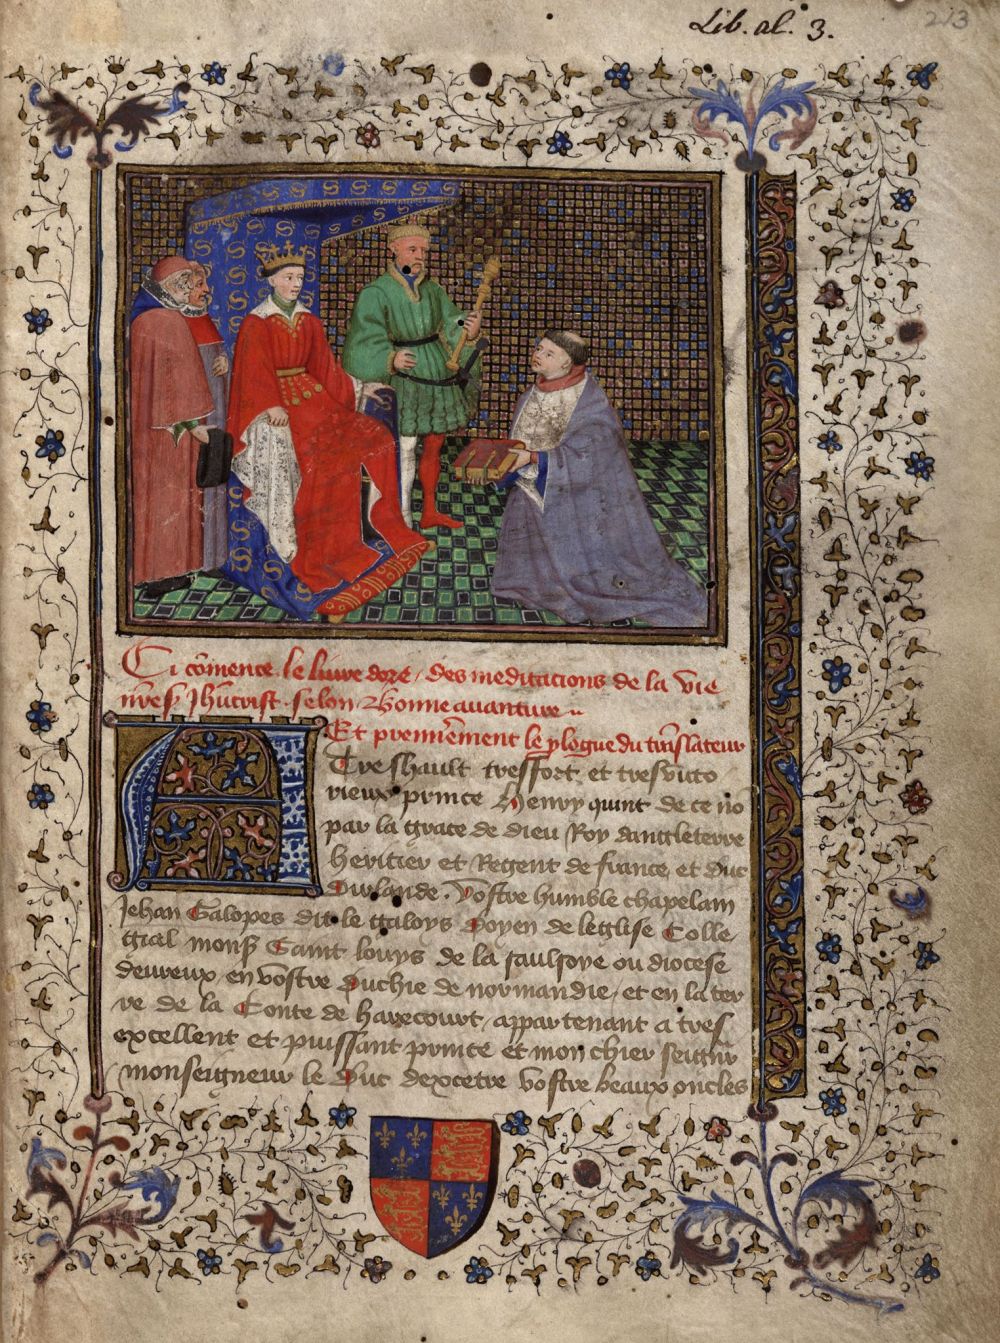 Lib. al. 3.
213
Ci cōmence le liure dore des meditacions de la vie
nr̄e sr̄ Jhūcrist selon Bonne auanture
Et premierement le p̱logue du trāslateur
Treshault tresfort et tresvicto
rieux prince Henry quint de ce no
par la grace de dieu Roy dangleterre
heritier et Regent de france et duc
Durlande. Vostre humble chapelain
Jehan Galopes dit le galoys Doyen de leglise Colle
gial monsr̄ Saint louys de la saulsoye ou diocese
deureux en vostre Duchie de normandie et en la ter
re de la Conte de harecourt appartenant a tres
excellent et puissant prince et mon chier seignr̄
monseigneur le Duc dexcetre vostre beaux oncles